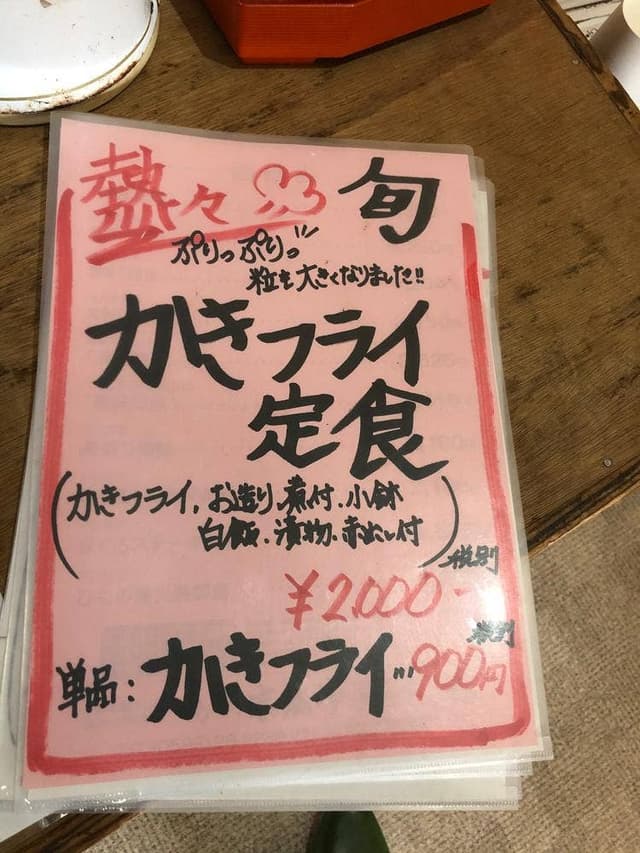 熱々 旬
ぷりっぷりっ
粒も大きくなりました!!
かきフライ
定食
(かきフライ、お造り、煮付、小鉢
白飯、漬物、赤出し付)
税別
¥2.000-
税別
単品:かきフライ…900円